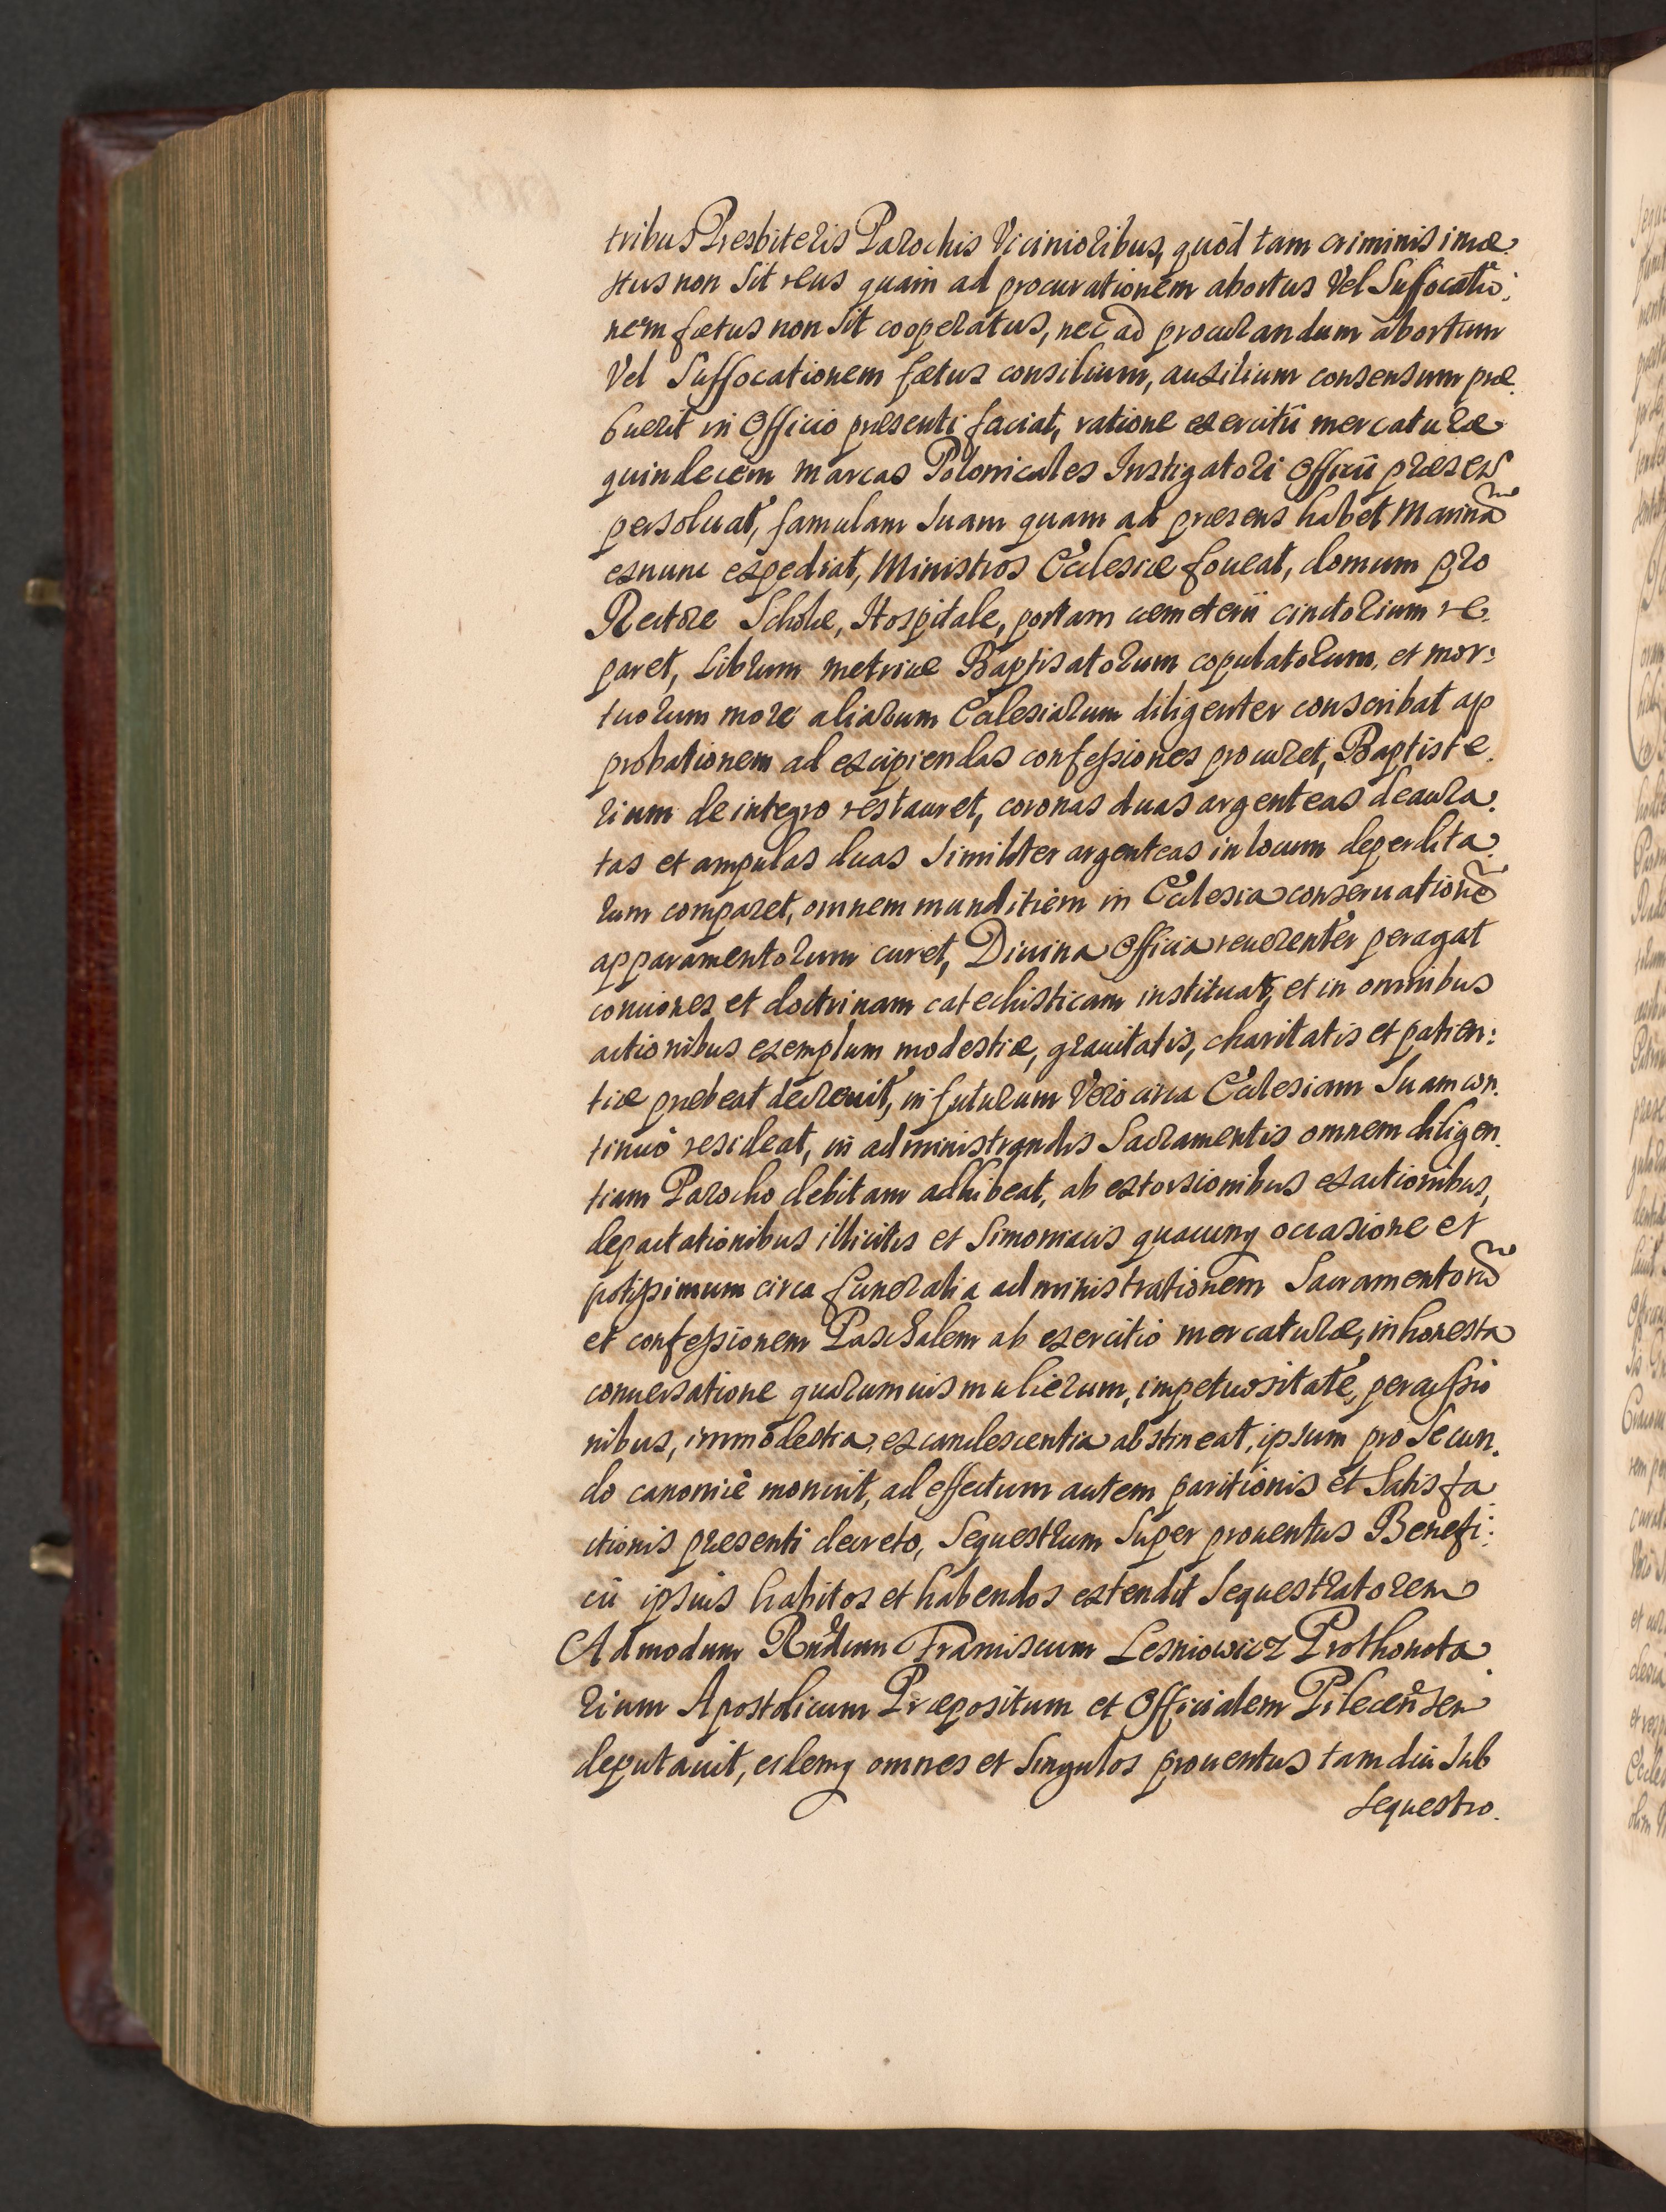 tribus Presbiteris Parochis Vicinioribus, quod tam criminis incæ
stus non sit reus quam ad procurationem abortus Vel Suffocatio:
nem fœtus non sit cooperatus, nec ad procurandum abortum
Vel Suffocationem fœtus consilium, auxilium consensum præ
buerit in Officio præsenti faciat, ratione exercitii mercaturæ
quindecem marcas Polonicales Instigatori Officii præsen
persoluat, famulam suam quam ad præsens habet Marinã
exnunc expediat, Ministros Ecclesiæ foueat, domum pro
Rectore Scholæ, Hospitale, portam cæmeterii cinctorium re
paret, Librum metricæ Baptisatorum copulatorum, et mor:
tuorum more aliarum Ecclesiarum diligenter conscribat ap
probationem ad excipiendas confessiones procuret, Baptiste
rium de integro restauret, coronas duas argenteas deaura
tas et ampulas duas similiter argenteas in locum deperdita
rum comparet, omnem munditiem in Ecclesia conseruationẽ
apparamentorum curet, Diuina Officia reuerenter peragat
conciones et doctrinam catechisticam instituat, et in omnibus
actionibus exemplum modestiæ, grauitatis, charitatis et patien:
tiæ præbeat decreuit, in futurum Vero circa Ecclesiam Suam con
tinuò resideat, in administrandis Sacramentis omnem diligen
tiam Parocho debitam adhibeat, ab extorsionibus exactionibus,
depactationibus illicitis et Simoniacis quacunq occasione et
potissimum circa funeralia administrationem Sacramentorũ
et confessionem Paschalem ab exercitio mercaturæ, inhonesta
conuersatione quarumuis mulierum, impetuositate, percussio
nibus, immodestia, excandescentia abstineat, ipsum pro Secun
do canonicè monuit, ad effectum autem paritionis et Satisfa
ctionis præsenti decreto, Sequestrum Super prouentus Benefi:
cii ipsius habitos et habendos extendit Sequestratorem
Admodum Rndum Franciscum Lesniowicz Prothonota
rium Apostolicum Præpositum et Officialem Pilecensem
deputauit, eidemq omnes et Singulos prouentus tamdiu Sub
Sequestro.